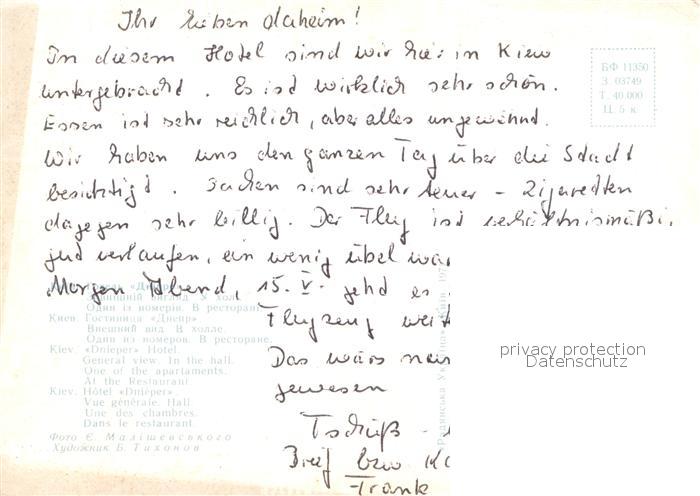 Ihr lieben daheim!
In diesem Hotel sind wir hier in Kiew
untergebracht. Es ist wirklich sehr schön.
Essen ist sehr reichlich, aber alles ungewohnt.
Wir haben uns den ganzen Tag über die Stadt
besichtigt. Sachen sind sehr teuer - Zigaretten
dagegen sehr billig. Der Flug ist verhältnismäßig
gut verlaufen, ein wenig übel war
Morgen Abend, 15. V. geht es
Flugzeug weit
Das wärs
gewesen
Tschüß -
Brief bzw
Frank
БФ 11350
З. 03749
Т. 40.000
Ц. 5 к.
Зовнішній вигляд. У холі.
Один із номерів. В ресторані.
Киев. Гостиница «Днепр»
Внешний вид. В холле.
Один из номеров. В ресторане.
Kiev. «Dnieper» Hotel.
General view. In the hall.
One of the apartaments.
At the Restaurant.
Kiev. Hôtel «Dnieper».
Vue générale. Hall.
Une des chambres.
Dans le restaurant.
Фото Є. Малішевського
Художник Б. Тихонов
privacy protection
Datenschutz